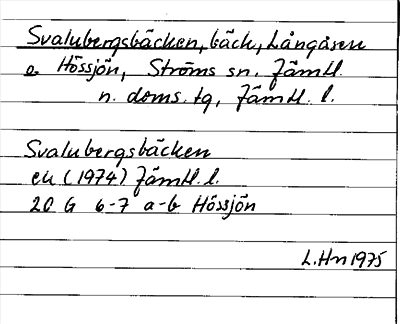 Svalubergsbäcken, bäck, Långåsen
o. Hössjön, Ströms sn. Jämtl.
n. doms. tg, Jämtl. l.
Svalubergsbäcken
ek (1974) Jämtl. l.
20 G 6-7 a-b Hössjön
L.Hn 1975